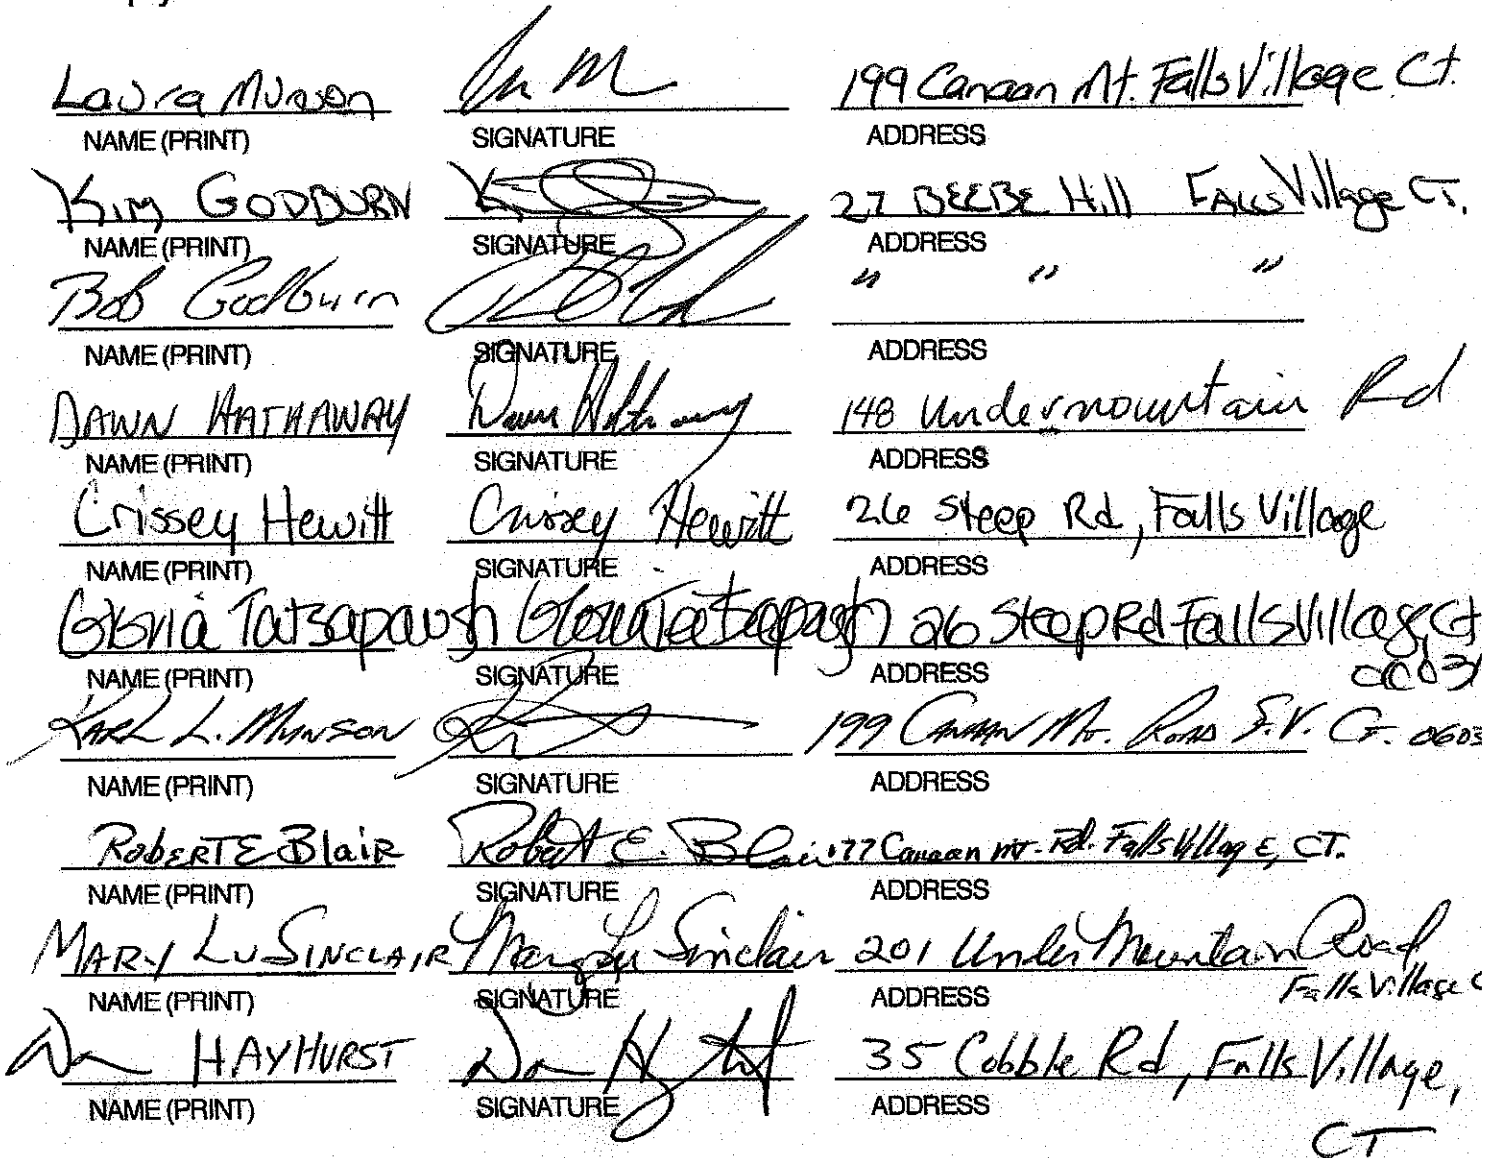 Laura Munson 199 Canaan Mt. Falls Village Ct.
NAME (PRINT) SIGNATURE ADDRESS
Kim GODBURN 27 BEEBE Hill FALLS Village CT.
NAME (PRINT) SIGNATURE ADDRESS
Bob Godburn " " "
NAME (PRINT) SIGNATURE ADDRESS
DAWN HATHAWAY Dawn Hathaway 148 Undermountain Rd
NAME (PRINT) SIGNATURE ADDRESS
Crissey Hewitt Crissey Hewitt 26 Steep Rd, Falls Village
NAME (PRINT) SIGNATURE ADDRESS
Gloria Tatsapaugh Gloria Tatsapaugh 26 Steep Rd Falls Village, Ct
06031
NAME (PRINT) SIGNATURE ADDRESS
KARL L. MUNSON 199 CANAAN MT. ROAD F.V. CT. 0603
NAME (PRINT) SIGNATURE ADDRESS
ROBERT E Blair Robert E. Blair 177 Canaan MT. Rd. Falls VillagE, CT.
NAME (PRINT) SIGNATURE ADDRESS
MARY LU SINCLAIR Mary Lu Sinclair 201 Under Mountain Road
Falls Village C
NAME (PRINT) SIGNATURE ADDRESS
HAYHURST 35 Cobble Rd, Falls Village,
CT
NAME (PRINT) SIGNATURE ADDRESS